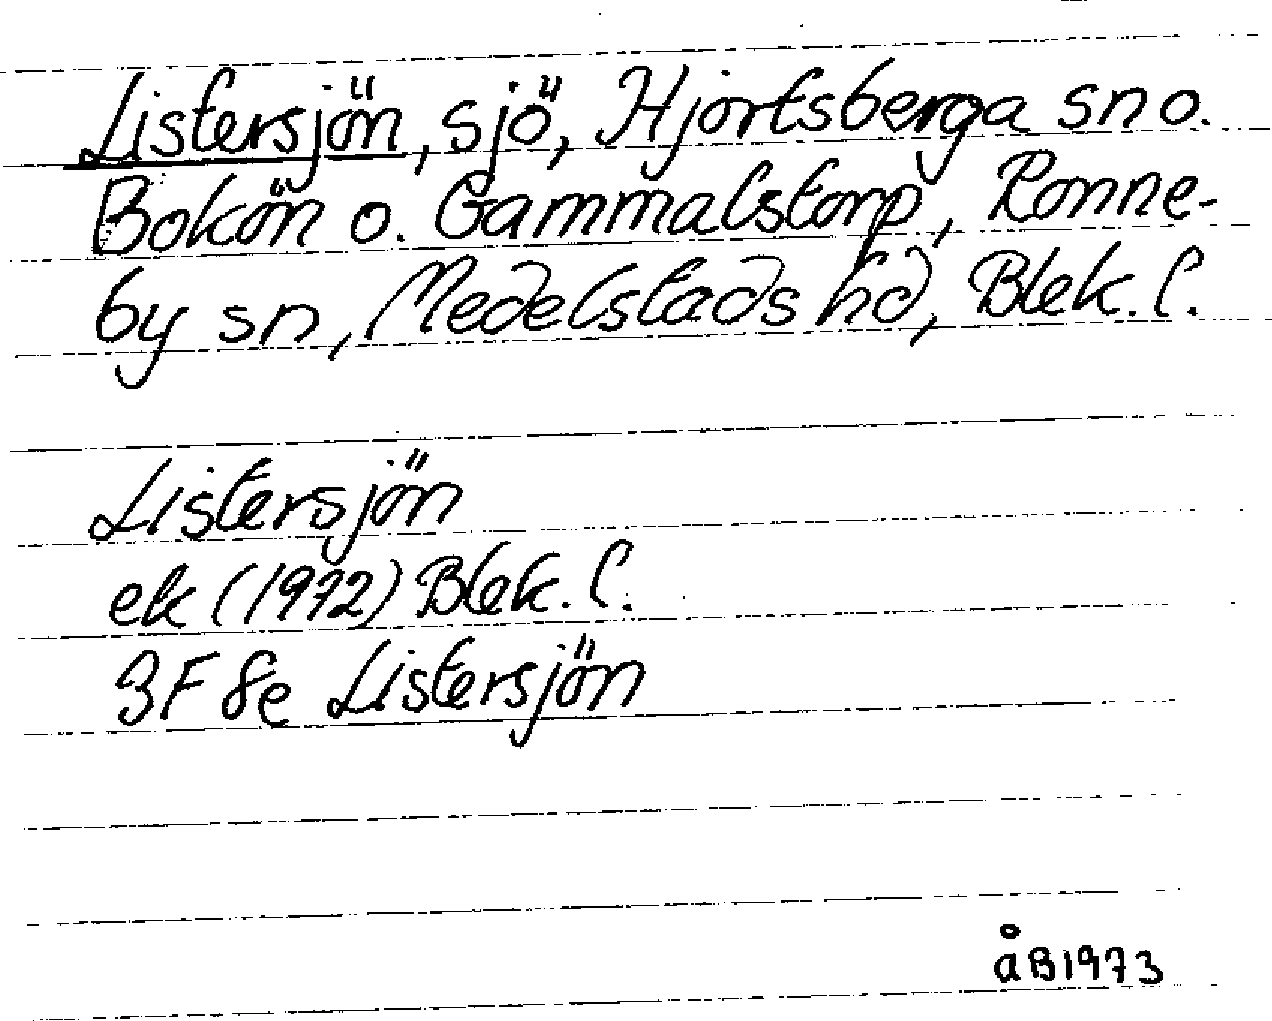 Listersjön, sjö, Hjortsberga sn o.
Bokön o. Gammalstorp, Ronne-
by sn, Medelstads hd, Blek. l.
Listersjön
ek (1972) Blek. l.
3F 8e Listersjön
åB1973